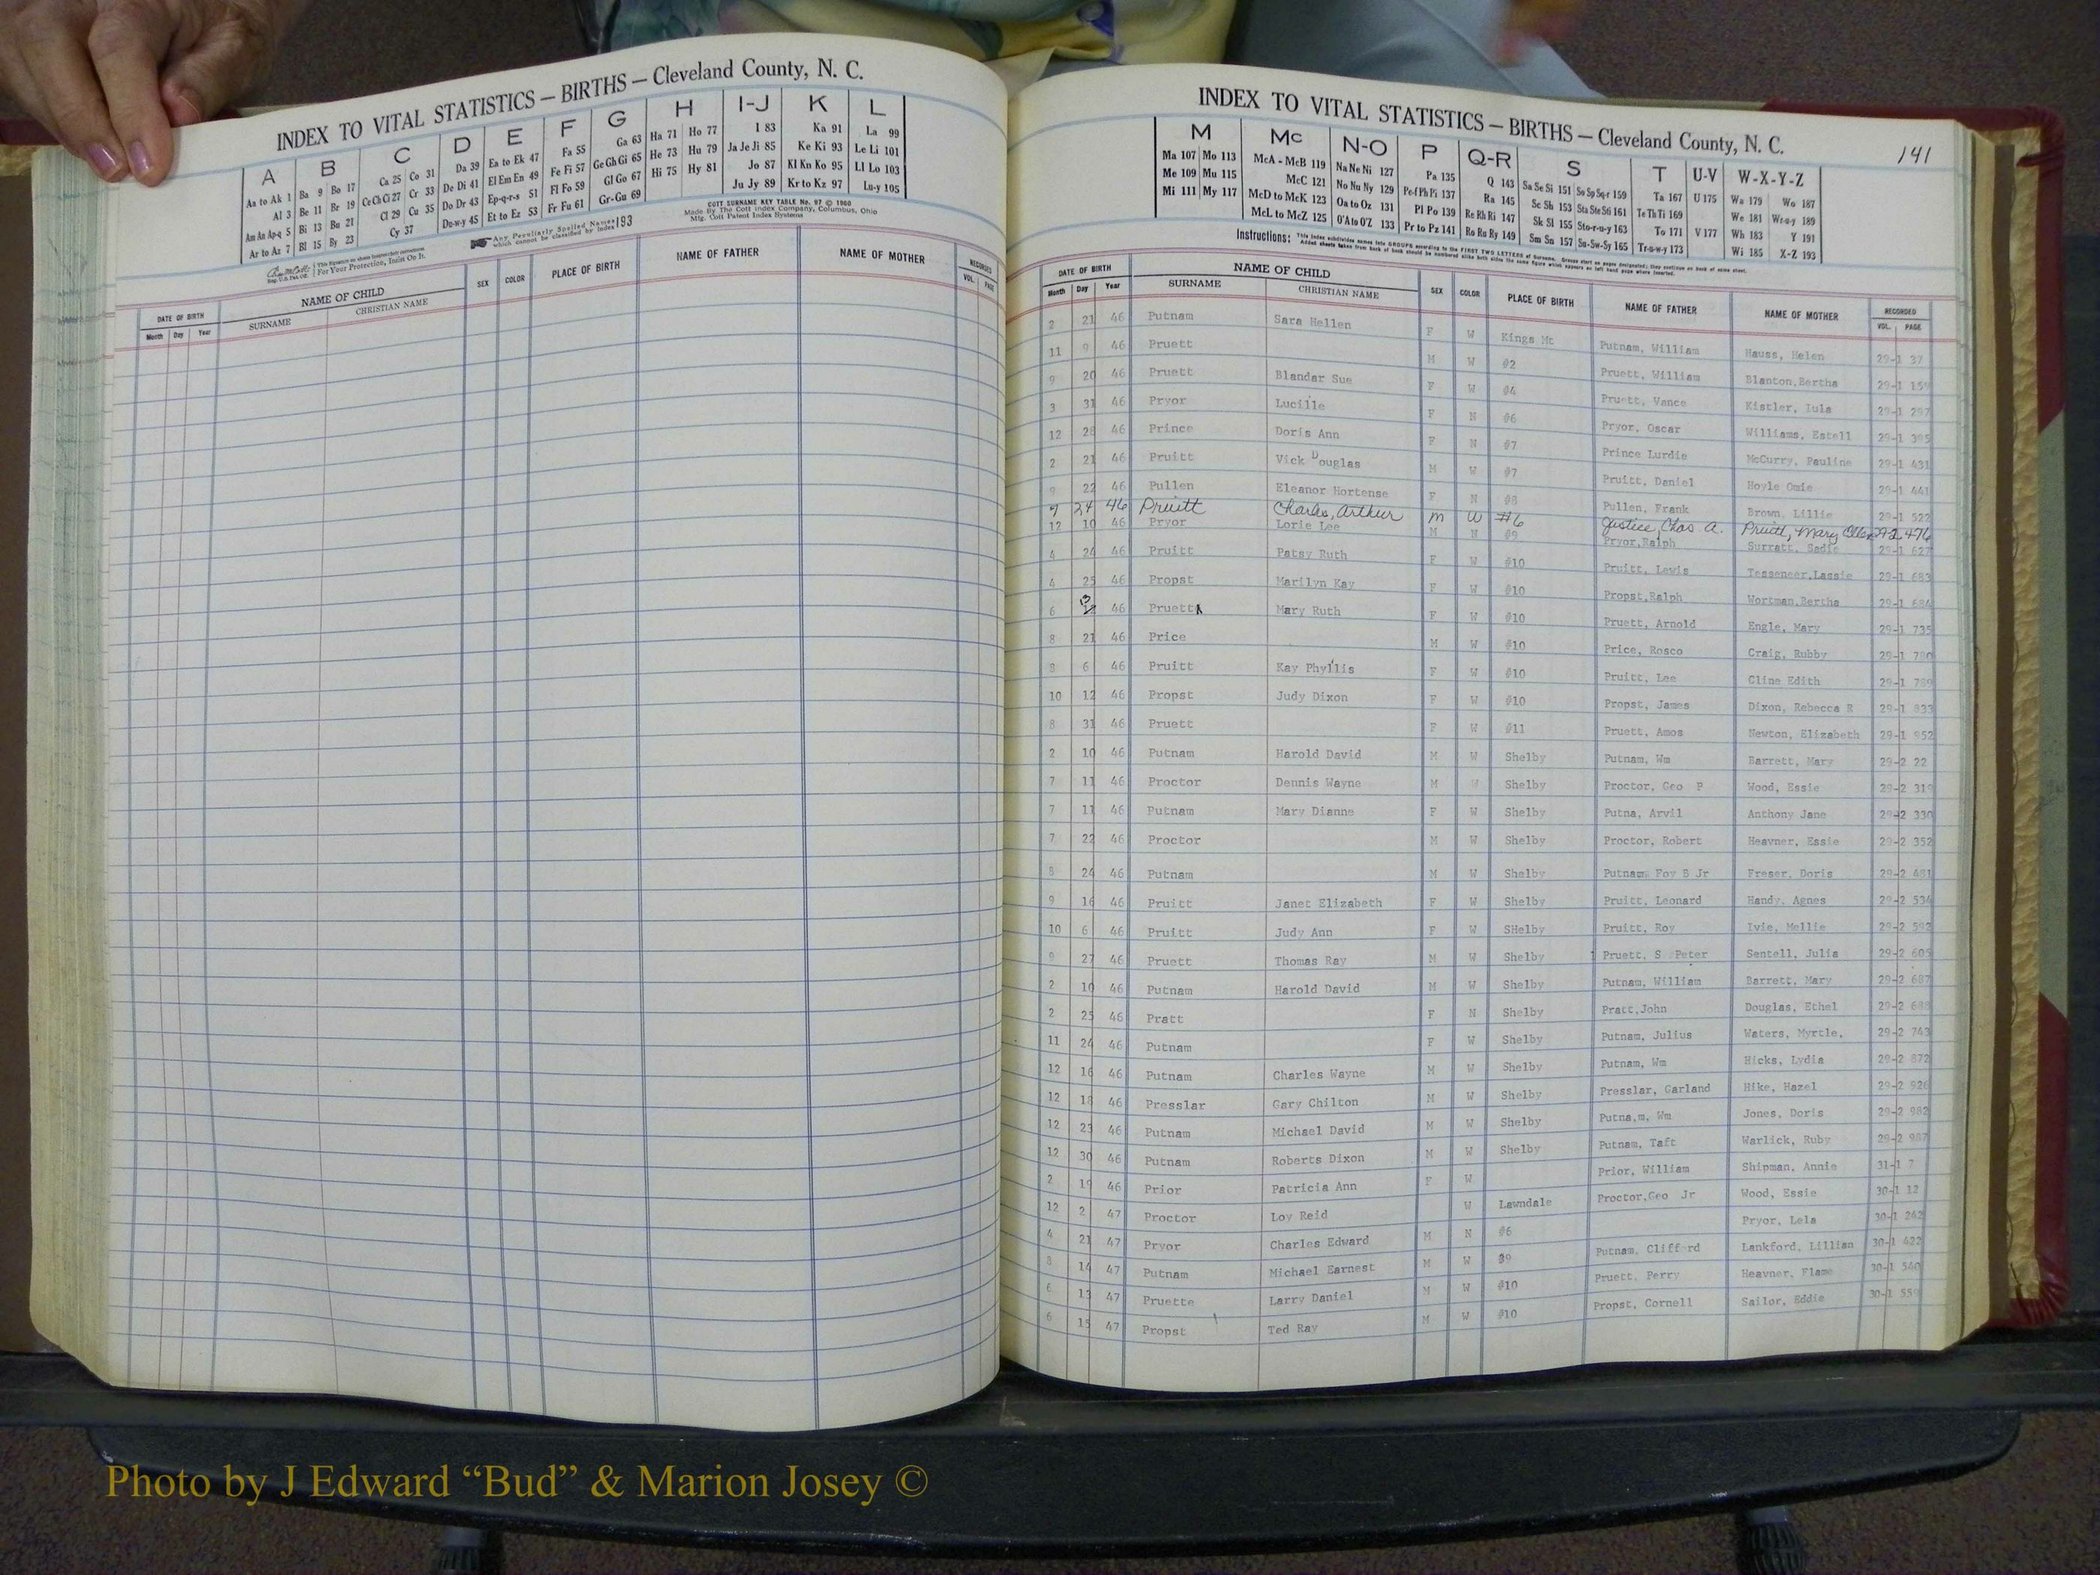 INDEX TO VITAL STATISTICS — BIRTHS — Cleveland County, N. C.
A B C D E F G H I-J K L
Aa to Ak 1 Ba 9 Bo 17 Ca 25 Co 31 Da 39 Ea to Ek 47 Fa 55 Ga 63 Ha 71 Ho 77 I 83 Ka 91 La 99
Al 3 Be 11 Br 19 Ce Ch Ci 27 Cr 33 De Di 41 El Em En 49 Fe Fi 57 Ge Gh Gi 65 He 73 Hu 79 Ja Je Ji 85 Ke Ki 93 Le Li 101
Am An Ap-q 5 Bi 13 Bu 21 Cl 29 Cu 35 Do Dr 43 Ep-q-r-s 51 Fl Fo 59 Gl Go 67 Hi 75 Hy 81 Jo 87 Kl Kn Ko 95 Ll Lo 103
Ar to Az 7 Bl 15 By 23 Cy 37 Du-w-y 45 Et to Ez 53 Fr Fu 61 Gr-Gu 69 Ju Jy 89 Kr to Kz 97 Lu-y 105
COTT SURNAME KEY TABLE No. 97 © 1960
Made By The Cott Index Company, Columbus, Ohio
Mfg. Cott Patent Index Systems
Any Peculiarly Spelled Names which cannot be classified by Index 193
For Your Protection, Insist On It.
DATE OF BIRTH NAME OF CHILD SEX COLOR PLACE OF BIRTH NAME OF FATHER NAME OF MOTHER RECORDED
Month Day Year SURNAME CHRISTIAN NAME VOL. PAGE
INDEX TO VITAL STATISTICS — BIRTHS — Cleveland County, N. C. 141
M Mc N-O P Q-R S T U-V W-X-Y-Z
Ma 107 Mo 113 McA - McB 119 Na Ne Ni 127 Pa 135 Q 143 Sa Se Si 151 So Sp Sq-r 159 Ta 167 U 175 Wa 179 Wo 187
Me 109 Mu 115 McC 121 No Nu Ny 129 Pe-f Ph Pi 137 Ra 145 Sc Sh 153 Sta Ste Sti 161 Te Th Ti 169 We 181 Wr-u-y 189
Mi 111 My 117 McD to McK 123 Oa to Oz 131 Pl Po 139 Re Rh Ri 147 Sk Sl 155 Sto-r-u-y 163 To 171 V 177 Wh 183 Y 191
McL to McZ 125 O'A to O'Z 133 Pr to Pz 141 Ro Ru Ry 149 Sm Sn 157 Su-Sw-Sy 165 Tr-u-w-y 173 Wi 185 X-Z 193
Instructions: This index subdivides names into GROUPS according to the FIRST TWO LETTERS of Surname.
DATE OF BIRTH NAME OF CHILD SEX COLOR PLACE OF BIRTH NAME OF FATHER NAME OF MOTHER RECORDED
Month Day Year SURNAME CHRISTIAN NAME VOL. PAGE
2 21 46 Putnam Sara Hellen F W Kings Mt Putnam, William Hauss, Helen 29-1 37
11 9 46 Pruett M W #2 Pruett, William Blanton, Bertha 29-1 159
9 20 46 Pruett Blandar Sue F W #4 Pruett, Vance Kistler, Iula 29-1 297
3 31 46 Pryor Lucille F N #6 Pryor, Oscar Williams, Estell 29-1 395
12 28 46 Prince Doris Ann F N #7 Prince Lurdie McCurry, Pauline 29-1 431
2 21 46 Pruitt Vick Douglas M W #7 Pruitt, Daniel Hoyle Omie 29-1 441
9 22 46 Pullen Eleanor Hortense F N #8 Pullen, Frank Brown, Lillie 29-1 522
7 24 46 Pruitt Charles, Arthur M W #6 Justice, Chas A. Pruitt, Mary Ellen 29-2 476
12 10 46 Pryor Lorie Lee M N #9 Pryor, Ralph Surratt, Sadie 29-1 627
4 24 46 Pruitt Patsy Ruth F W #10 Pruitt, Lewis Tesseneer, Lassie 29-1 683
4 25 46 Propst Marilyn Kay F W #10 Propst, Ralph Wortman, Bertha 29-1 684
6 46 Pruett Mary Ruth F W #10 Pruett, Arnold Engle, Mary 29-1 735
8 21 46 Price M W #10 Price, Rosco Craig, Rubby 29-1 780
8 6 46 Pruitt Kay Phyllis F W #10 Pruitt, Lee Cline Edith 29-1 789
10 12 46 Propst Judy Dixon F W #10 Propst, James Dixon, Rebecca R 29-1 833
8 31 46 Pruett F W #11 Pruett, Amos Newton, Elizabeth 29-1 952
2 10 46 Putnam Harold David M W Shelby Putnam, Wm Barrett, Mary 29-2 22
7 11 46 Proctor Dennis Wayne M W Shelby Proctor, Geo P Wood, Essie 29-2 319
7 11 46 Putnam Mary Dianne F W Shelby Putna, Arvil Anthony Jane 29-2 330
7 22 46 Proctor M W Shelby Proctor, Robert Heavner, Essie 29-2 352
8 24 46 Putnam M W Shelby Putnam Foy B Jr Freser, Doris 29-2 481
9 16 46 Pruitt Janet Elizabeth F W Shelby Pruitt, Leonard Handy, Agnes 29-2 534
10 6 46 Pruitt Judy Ann F W SHelby Pruitt, Roy Ivie, Mellie 29-2 592
9 27 46 Pruett Thomas Ray M W Shelby Pruett, S Peter Sentell, Julia 29-2 605
2 10 46 Putnam Harold David M W Shelby Putnam, William Barrett, Mary 29-2 687
2 25 46 Pratt F N Shelby Pratt, John Douglas, Ethel 29-2 688
11 24 46 Putnam F W Shelby Putnam, Julius Waters, Myrtle, 29-2 743
12 16 46 Putnam Charles Wayne M W Shelby Putnam, Wm Hicks, Lydia 29-2 872
12 18 46 Presslar Gary Chilton M W Shelby Presslar, Garland Hike, Hazel 29-2 926
12 23 46 Putnam Michael David M W Shelby Putna,m, Wm Jones, Doris 29-2 982
12 30 46 Putnam Roberts Dixon M W Shelby Putnam, Taft Warlick, Ruby 29-2 987
2 19 46 Prior Patricia Ann F W Prior, William Shipman, Annie 31-1 7
12 2 47 Proctor Loy Reid W Lawndale Proctor, Geo Jr Wood, Essie 30-1 12
4 21 47 Pryor Charles Edward M N #6 Pryor, Lela 30-1 262
8 14 47 Putnam Michael Earnest M W #9 Putnam, Clifford Lankford, Lillian 30-1 422
6 13 47 Pruette Larry Daniel M W #10 Pruett, Perry Heavner, Flame 30-1 540
6 15 47 Propst Ted Ray M W #10 Propst, Cornell Sailor, Eddie 30-1 559
Photo by J Edward “Bud” & Marion Josey ©